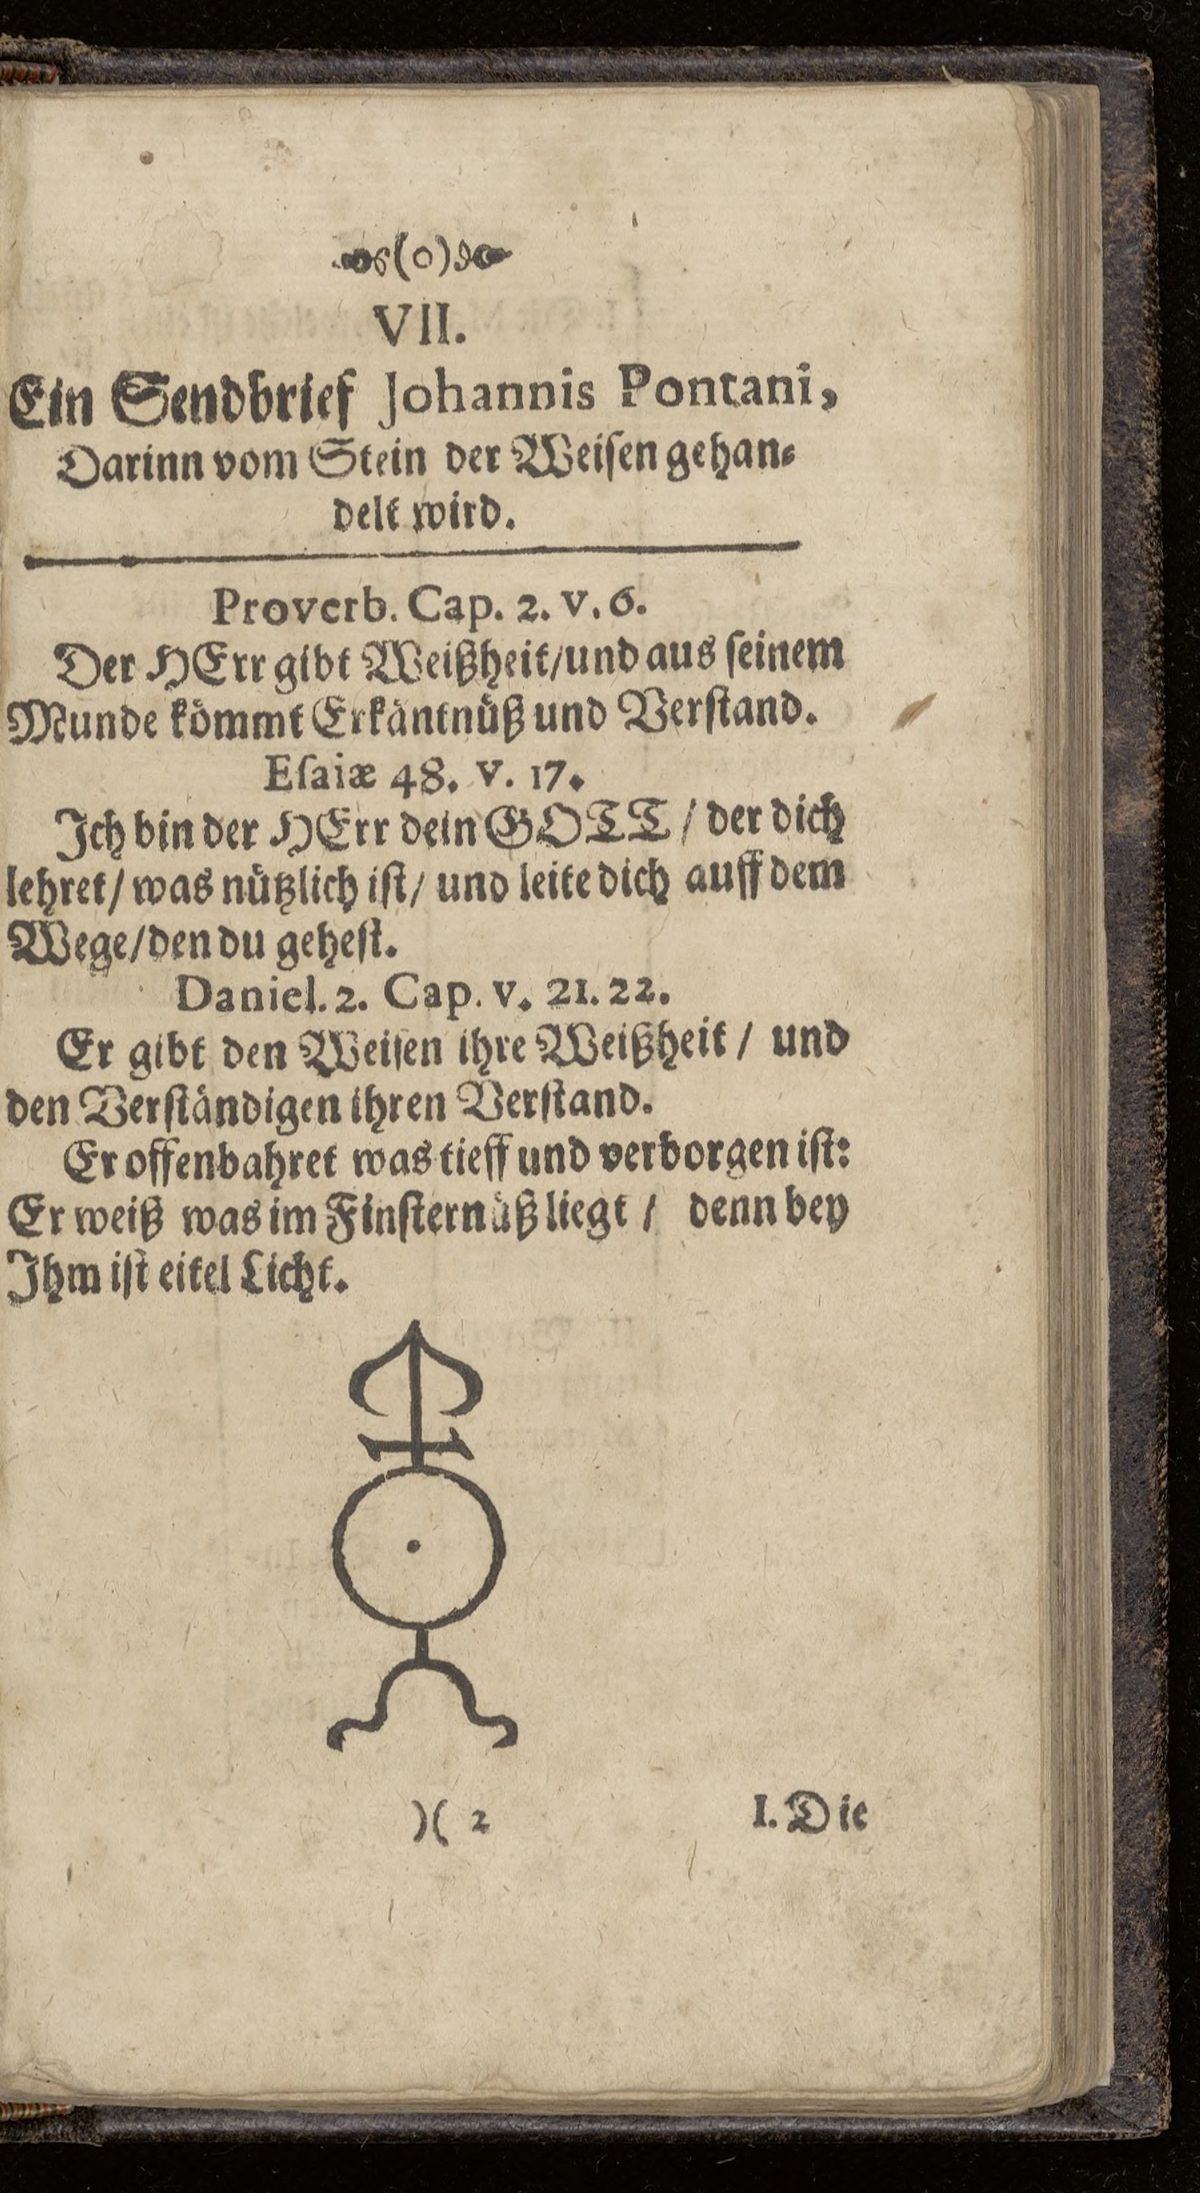 (o)
VII.
Ein Sendbrief Johannis Pontani,
Darinn vom Stein der Weiſen gehan⸗
delt wird.
Proverb. Cap. 2. v. 6.
Der HErr gibt Weißheit/und aus ſeinem
Munde kömmt Erkäntnüß und Verſtand.
Eſaiæ 48. v. 17.
Ich bin der HErr dein GOTT / der dich
lehret/ was nützlich iſt/ und leite dich auff dem
Wege/den du geheſt.
Daniel. 2. Cap. v. 21. 22.
Er gibt den Weiſen ihre Weißheit / und
den Verſtändigen ihren Verſtand.
Er offenbahret was tieff und verborgen iſt:
Er weiß was im Finſternüß liegt / denn bey
Ihm iſt eitel Licht.
)( 2 I. Die